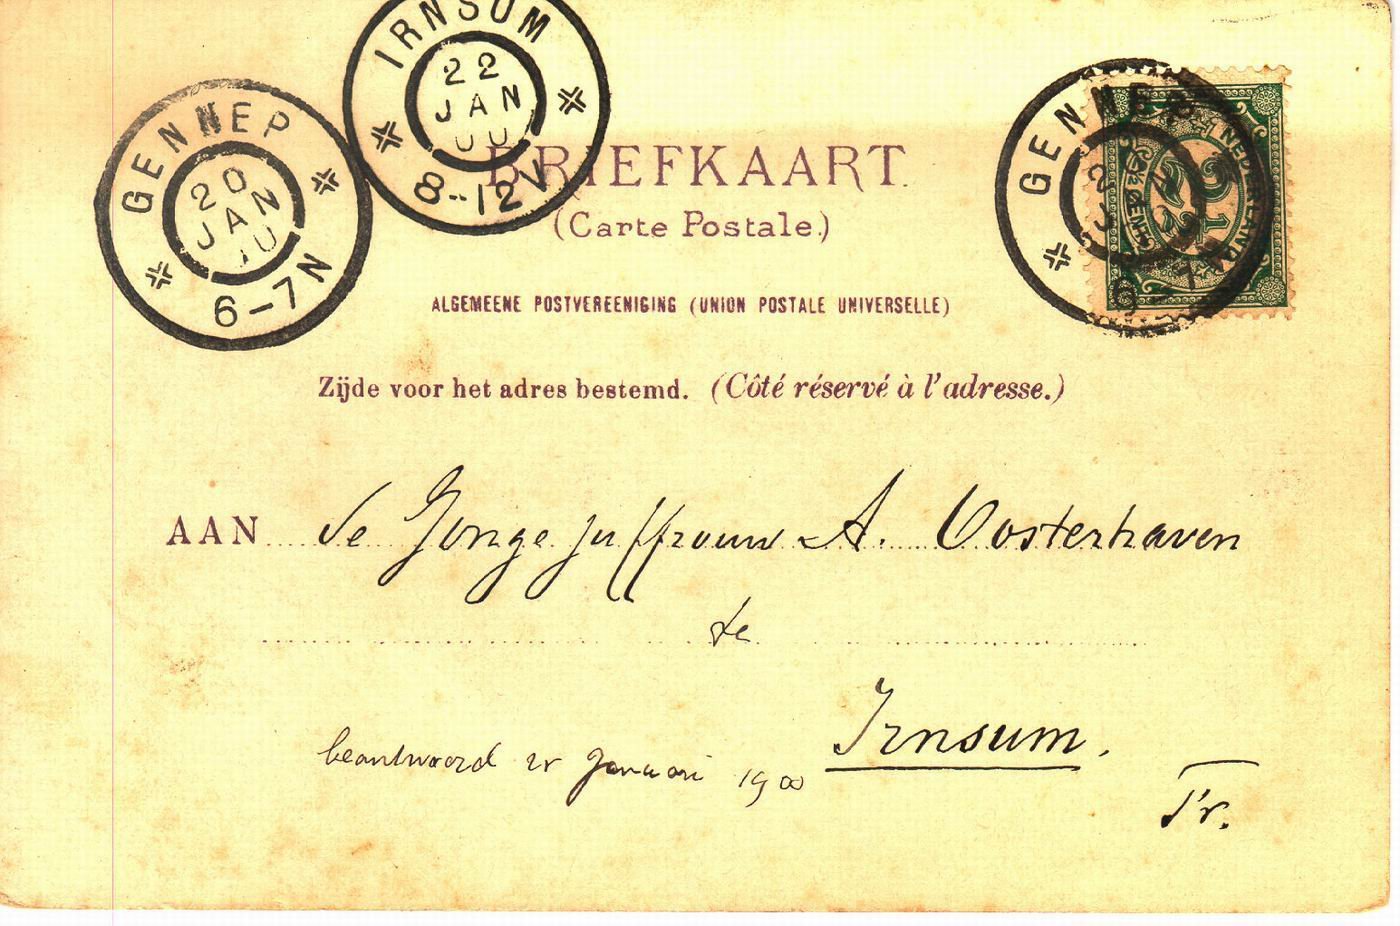 IRNSUM
22
JAN
00
8-12V
GENNEP
20
JAN
00
6-7N
GENNEP
NEDERLAND
2½
CENT
BRIEFKAART.
(Carte Postale.)
ALGEMEENE POSTVEREENIGING (UNION POSTALE UNIVERSELLE)
Zijde voor het adres bestemd. (Côté réservé à l'adresse.)
AAN de Jonge juffrouw A. Oosterhaven
te
Irnsum.
beantwoord Januari 1900
Fr.